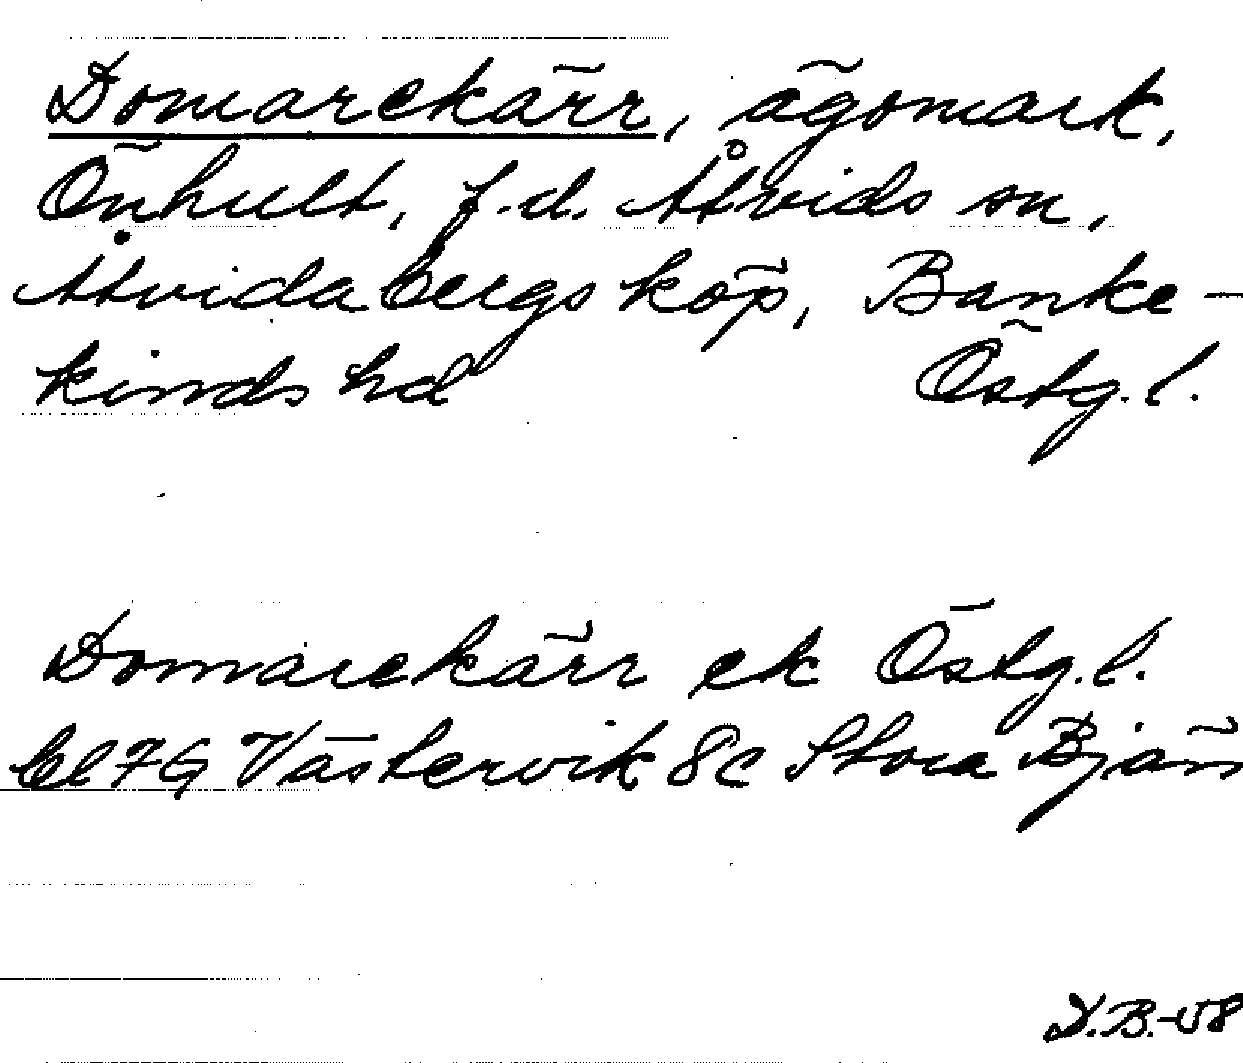 Domarekärr, ägomark,
Önhult, f.d. Åtvids sn,
Åtvidabergs köp, Banke-
kinds hd Östg.l.
Domarekärr ek Östg.l.
bl 7G Västervik 8c Stora Bjän
D.B.-58